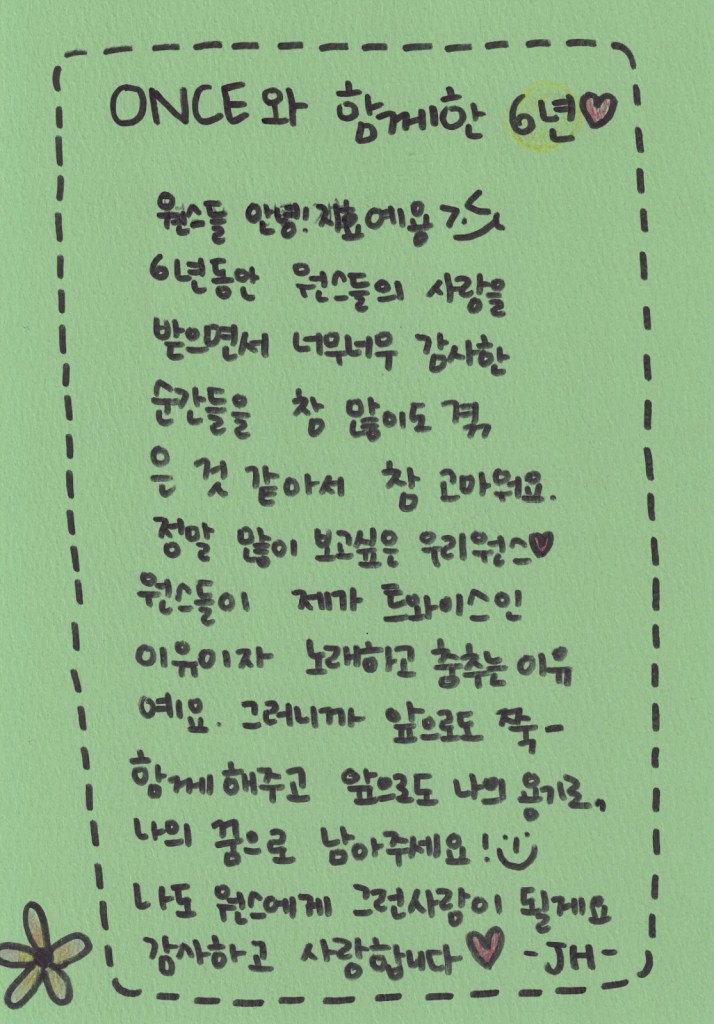 ONCE와 함께한 6년♥
원스들 안녕! 지효예용
6년동안 원스들의 사랑을
받으면서 너무너무 감사한
순간들을 참 많이도 겪
은 것 같아서 참 고마워요.
정말 많이 보고싶은 우리원스♥
원스들이 제가 트와이스인
이유이자 노래하고 춤추는 이유
예요. 그러니까 앞으로도 쭉-
함께해주고 앞으로도 나의 용기로,
나의 꿈으로 남아주세요!
나도 원스에게 그런사랑이 될게요
감사하고 사랑합니다♥ -JH-